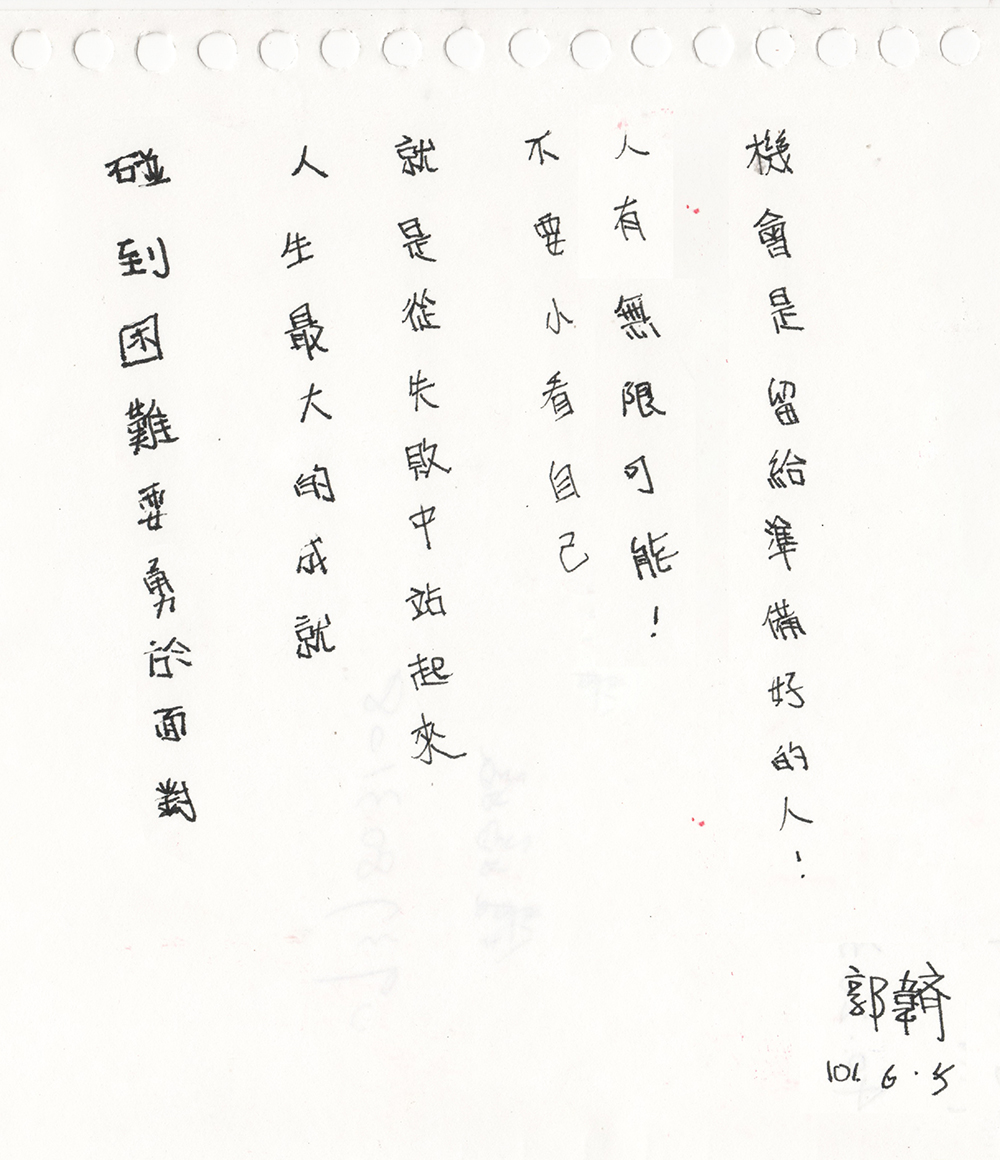 碰到困難要勇於面對
人生最大的成就
就是從失敗中站起來
不要小看自己
人有無限可能!
機會是留給準備好的人!
郭韋齊
101. 6. 5